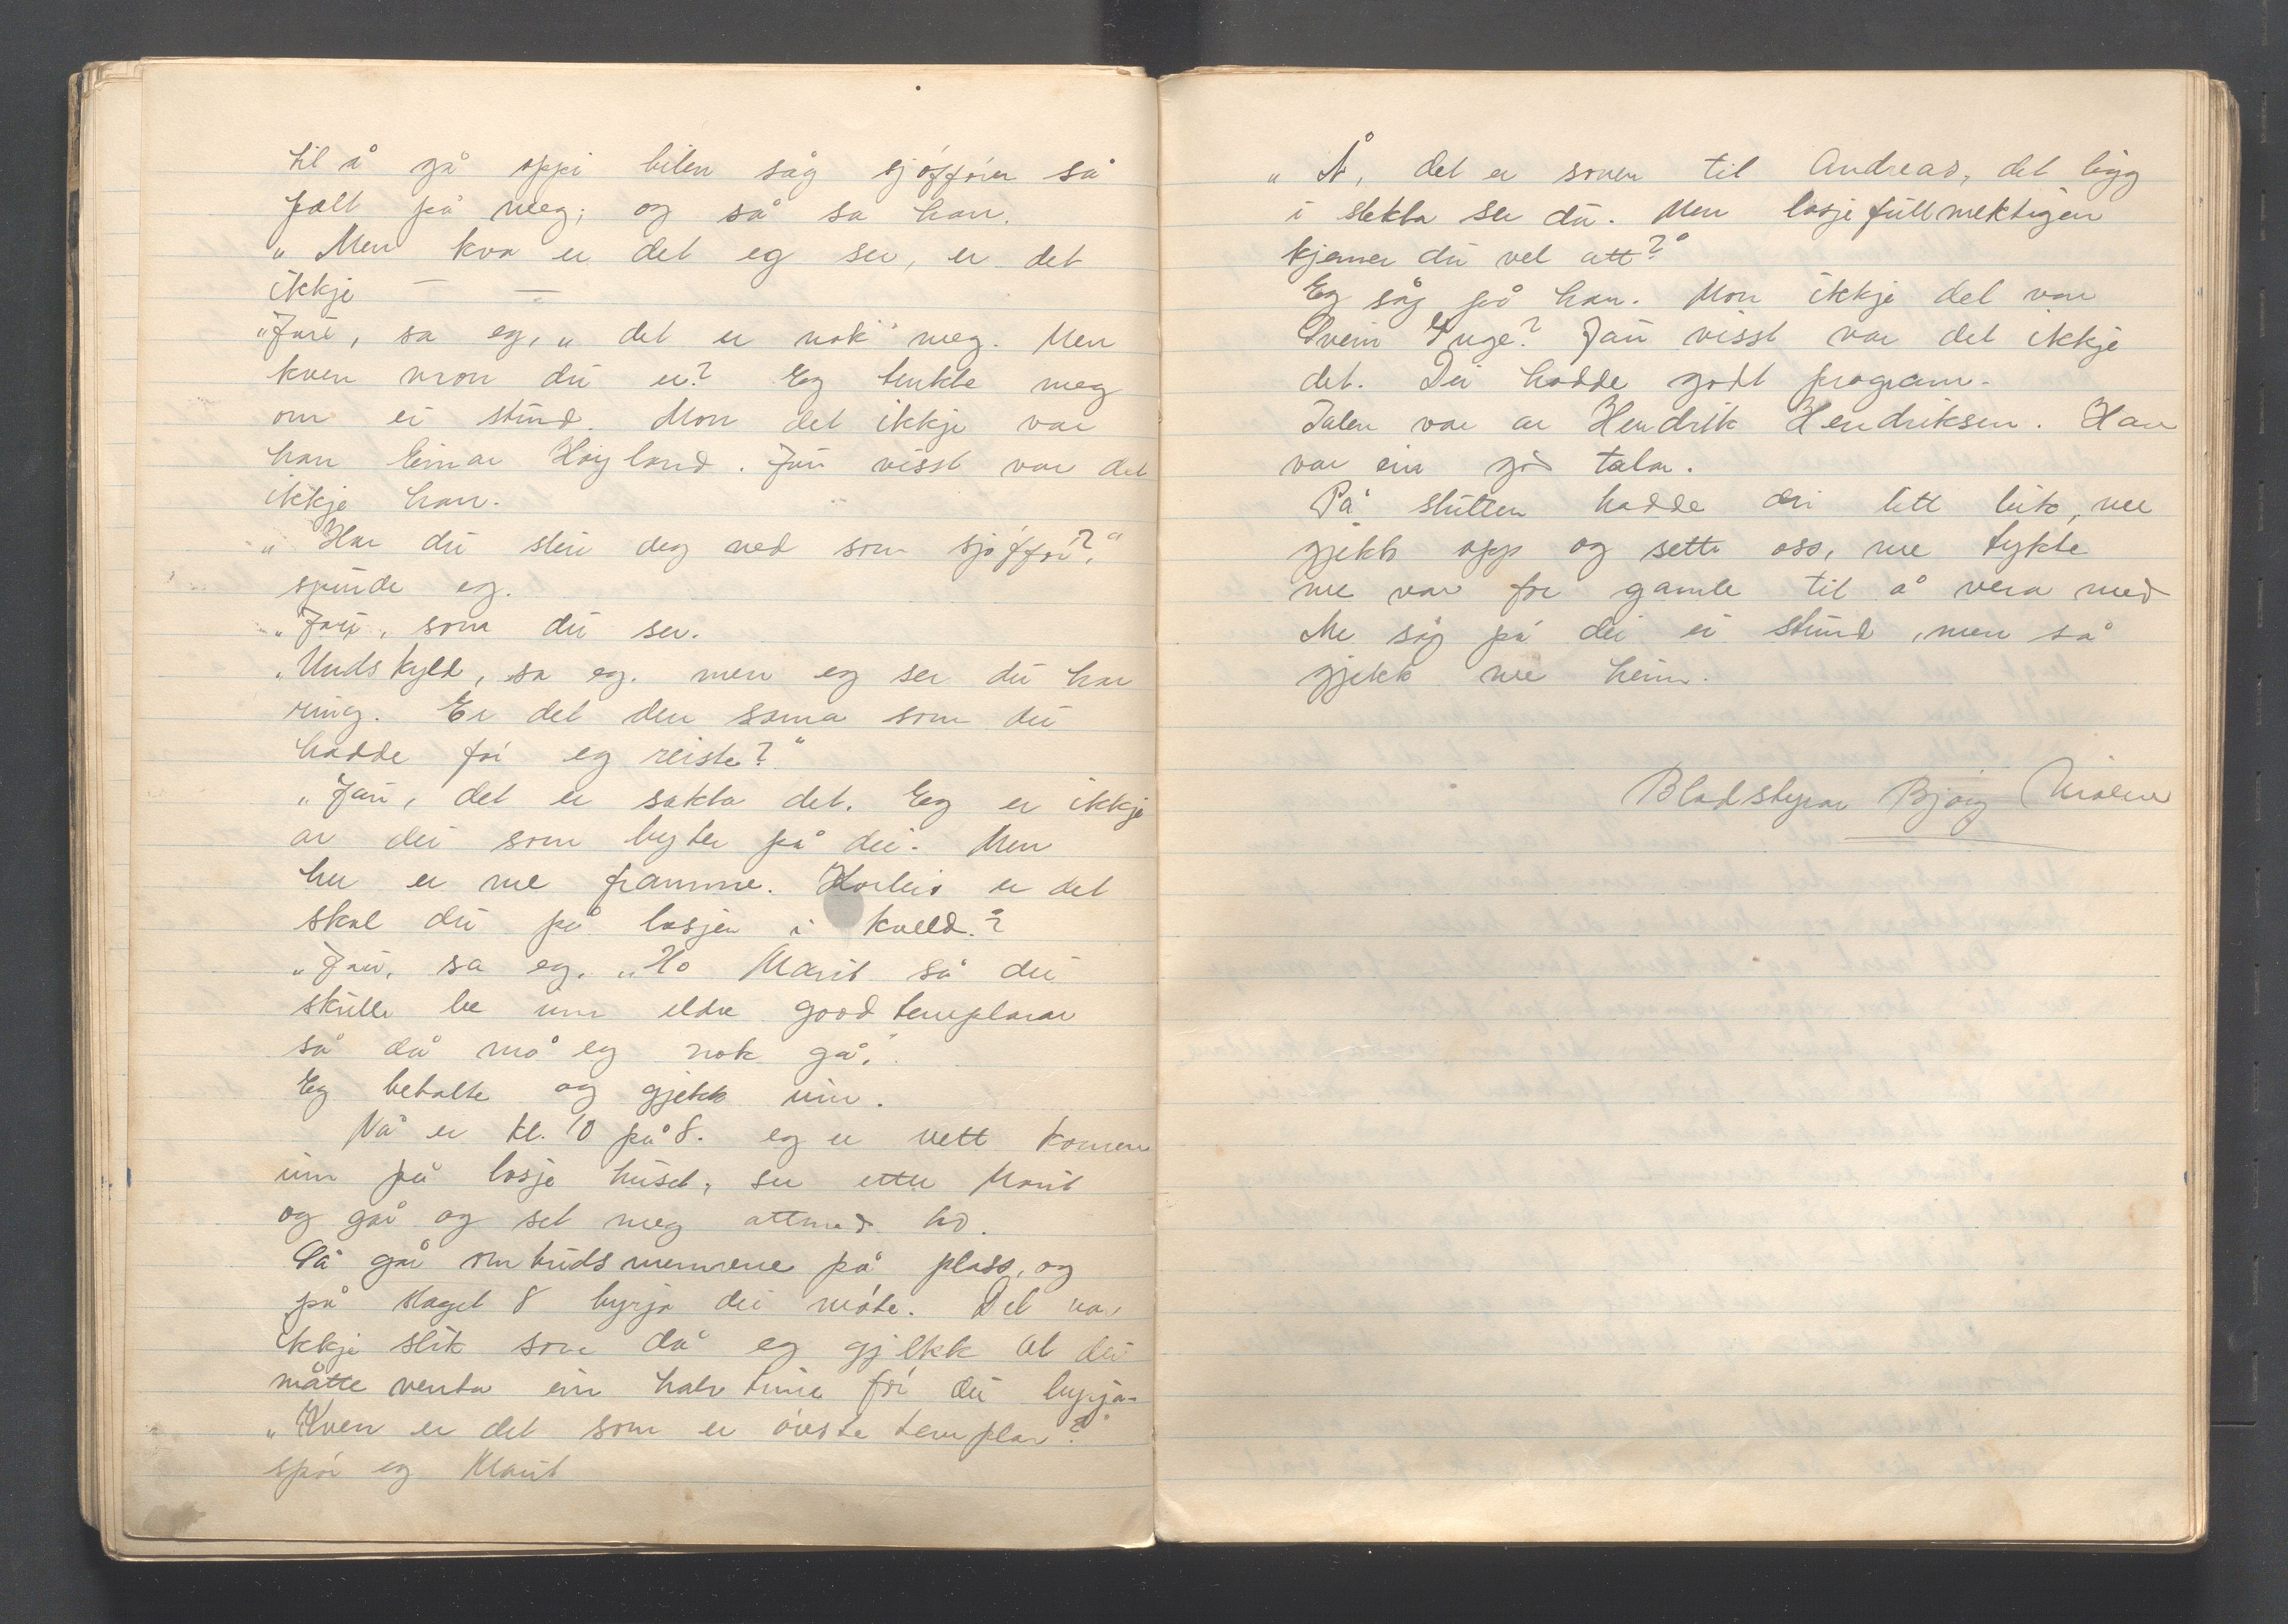 til å gå oppi bilen såg sjåfføren så
fælt på meg; og så sa han.
„Men kva er det eg ser, er det
ikkje — —
„Jau, sa eg, „det er nok meg. Men
kven mon du er? Eg tenkte meg
om ei stund. Mon det ikkje var
han Einar Høyland. Jau visst var det
ikkje han.
„Har du slen deg ned som sjåffør?"
spurde eg.
„Jau, som du ser.
„Undskyld, sa eg. men eg ser du har
ring. Er det den sama som du
hadde før eg reiste?"
„Jau, det er sakta det. Eg er ikkje
av dei som byter på dei. Men
her er me framme. Korleis er det
skal du på losjen i kveld.?
„Jau, sa eg. „Ho Marit sa dei
skulle be inn eldre goodtemplarar
så då må eg nok gå."
Eg betalte og gjekk inn.
Nå er kl. 10 på 8. eg er nett komen
inn på losje huset, ser etter Marit
og går og set meg attmed ho.
Så går ombudsmennene på plass, og
på slaget 8 byrja dei møte. Det var
ikkje slik som då eg gjekk at dei
måtte venta ein halv time før dei byrja.
„Kven er det som er øvste templar?"
spør eg Marit
„Å, det er sonen til Andreas, det ligg
i slekta ser du. Men losjefullmektigen
kjenner du vel att?"
Eg såg på han. Mon ikkje det var
Svein Inge? Jau visst var det ikkje
det. Dei hadde godt program.
Talen var av Hendrik Hendriksen. Han
var ein god talar.
På slutten hadde dei litt leik, me
gjekk opp og sette oss, me tykte
me var for gamle til å vera med
Me såg på dei ei stund, men så
gjekk me heim.
Bladstyrar Bjørg